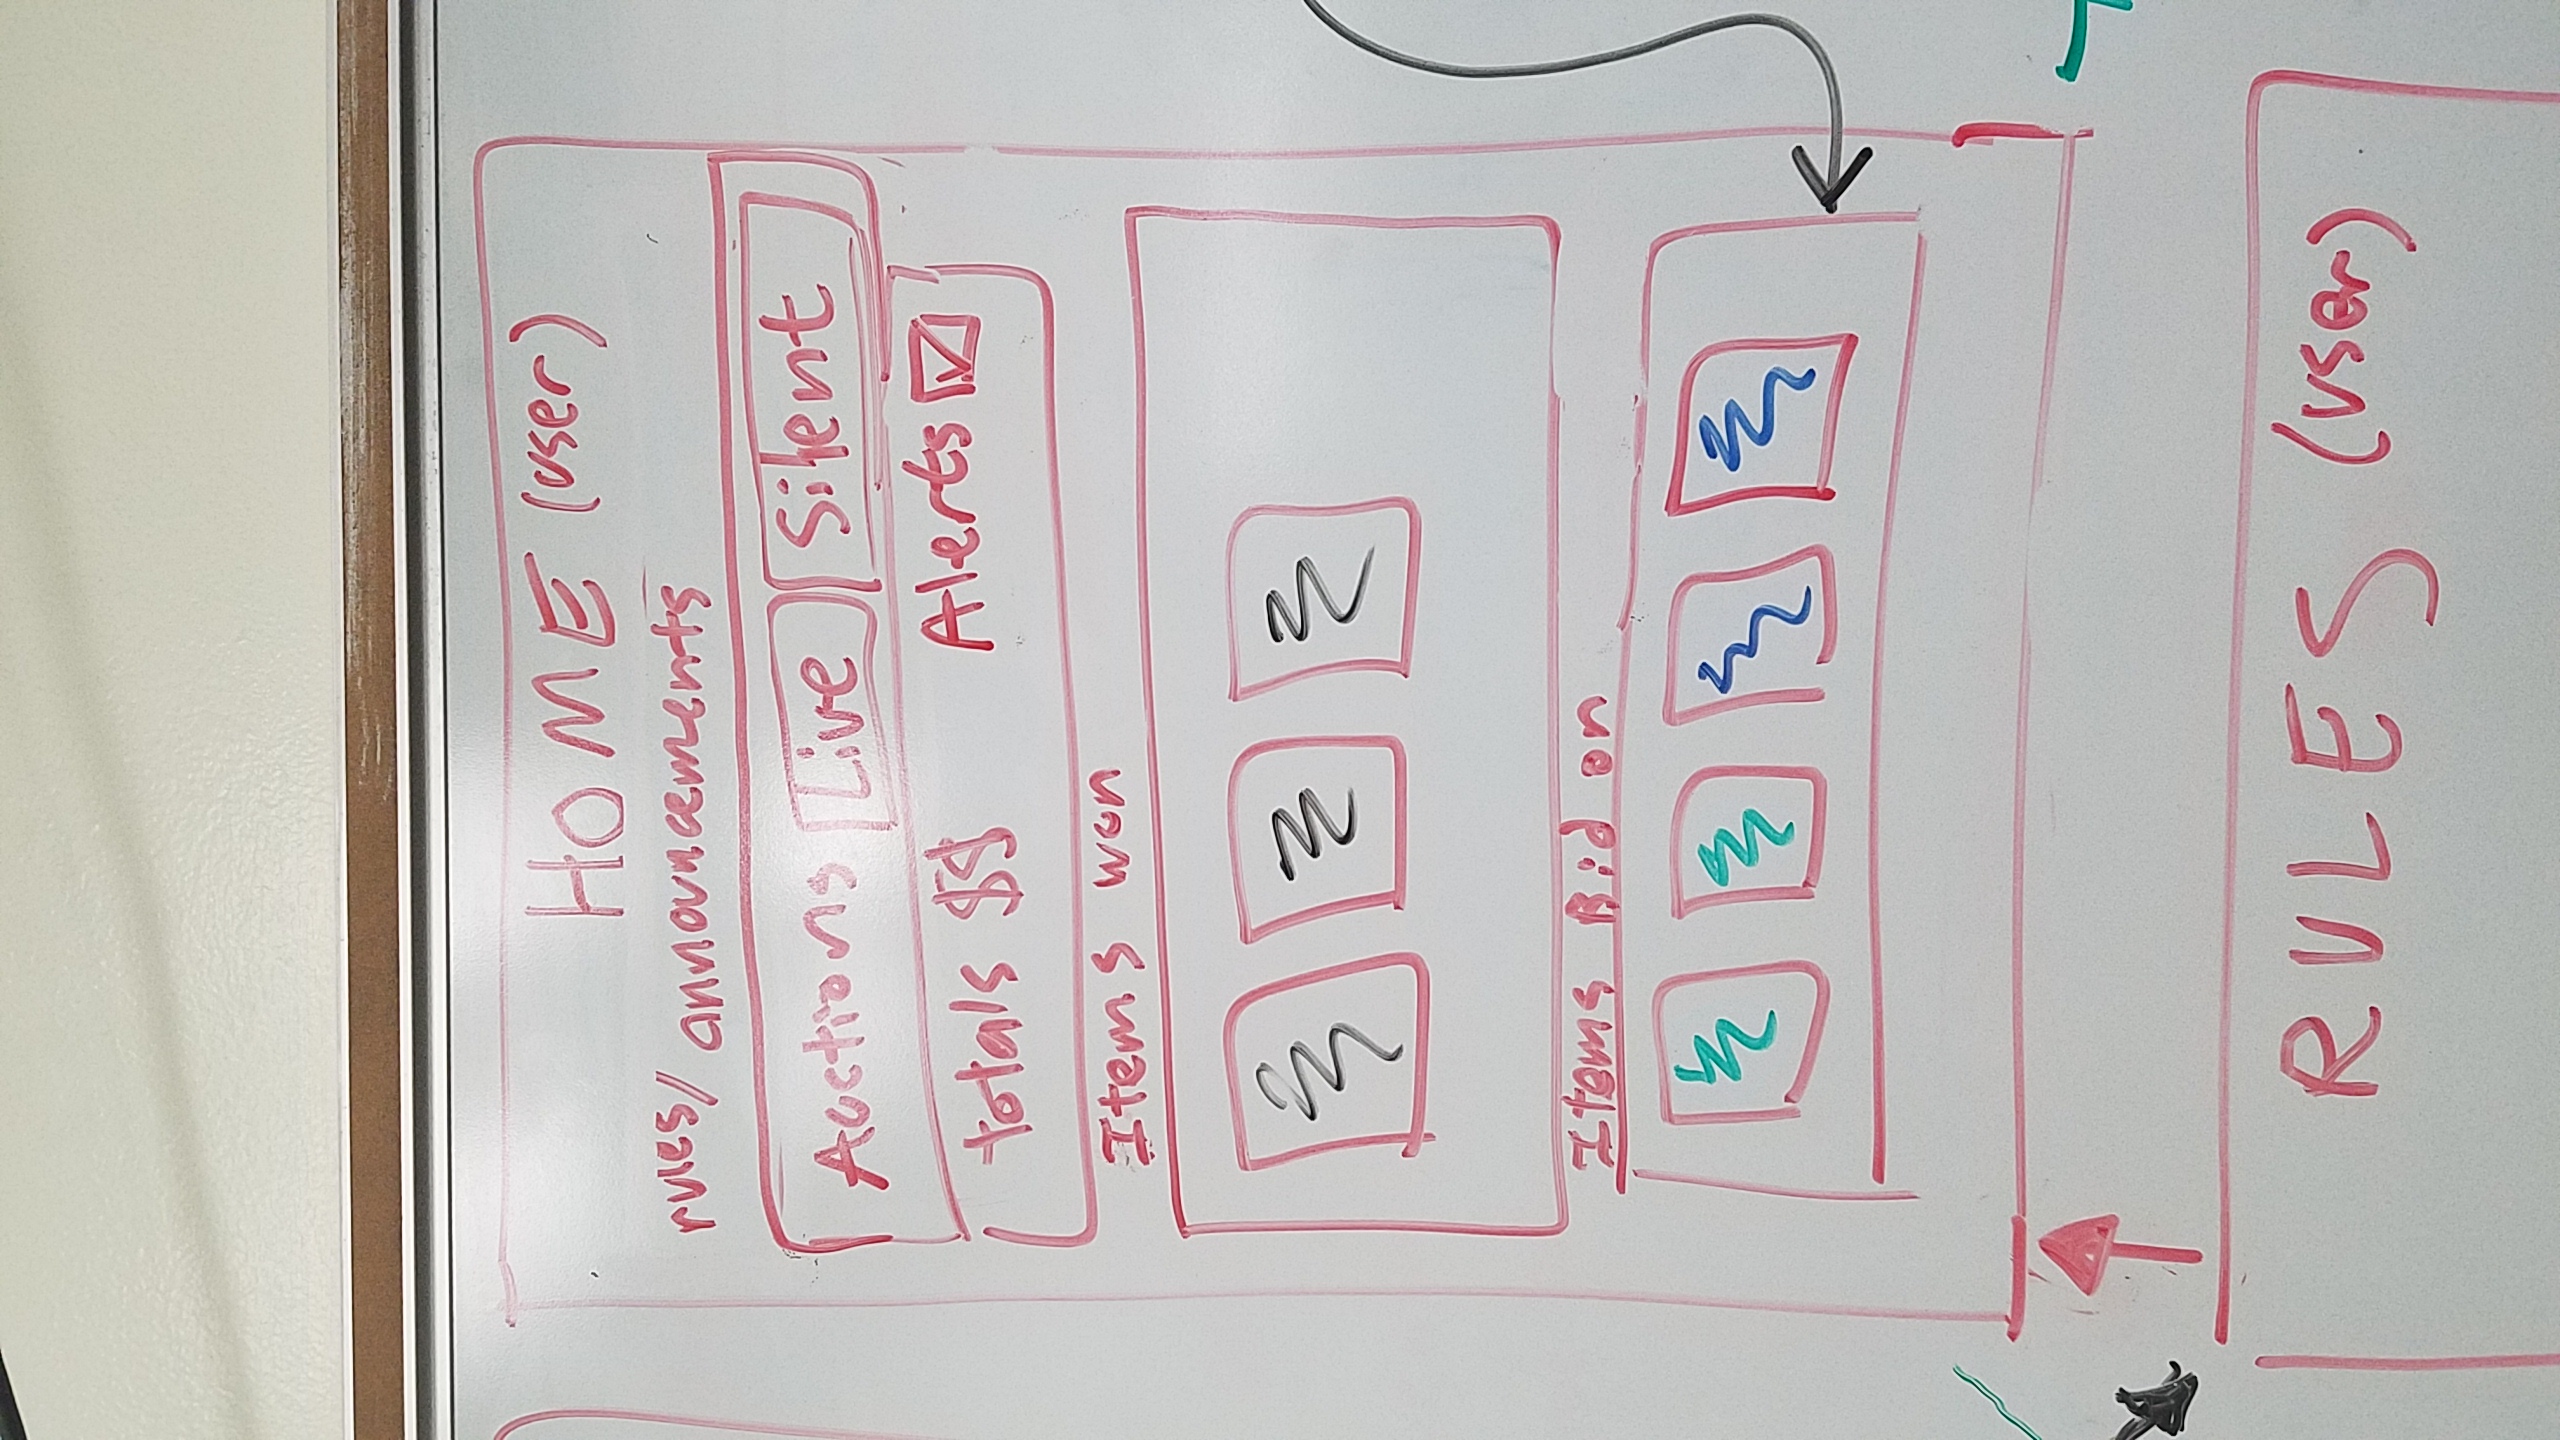 HOME (user)
rules/ announcements
Auctions Live Silent
totals $$ Alerts
Items won
Items Bid on
RULES (user)